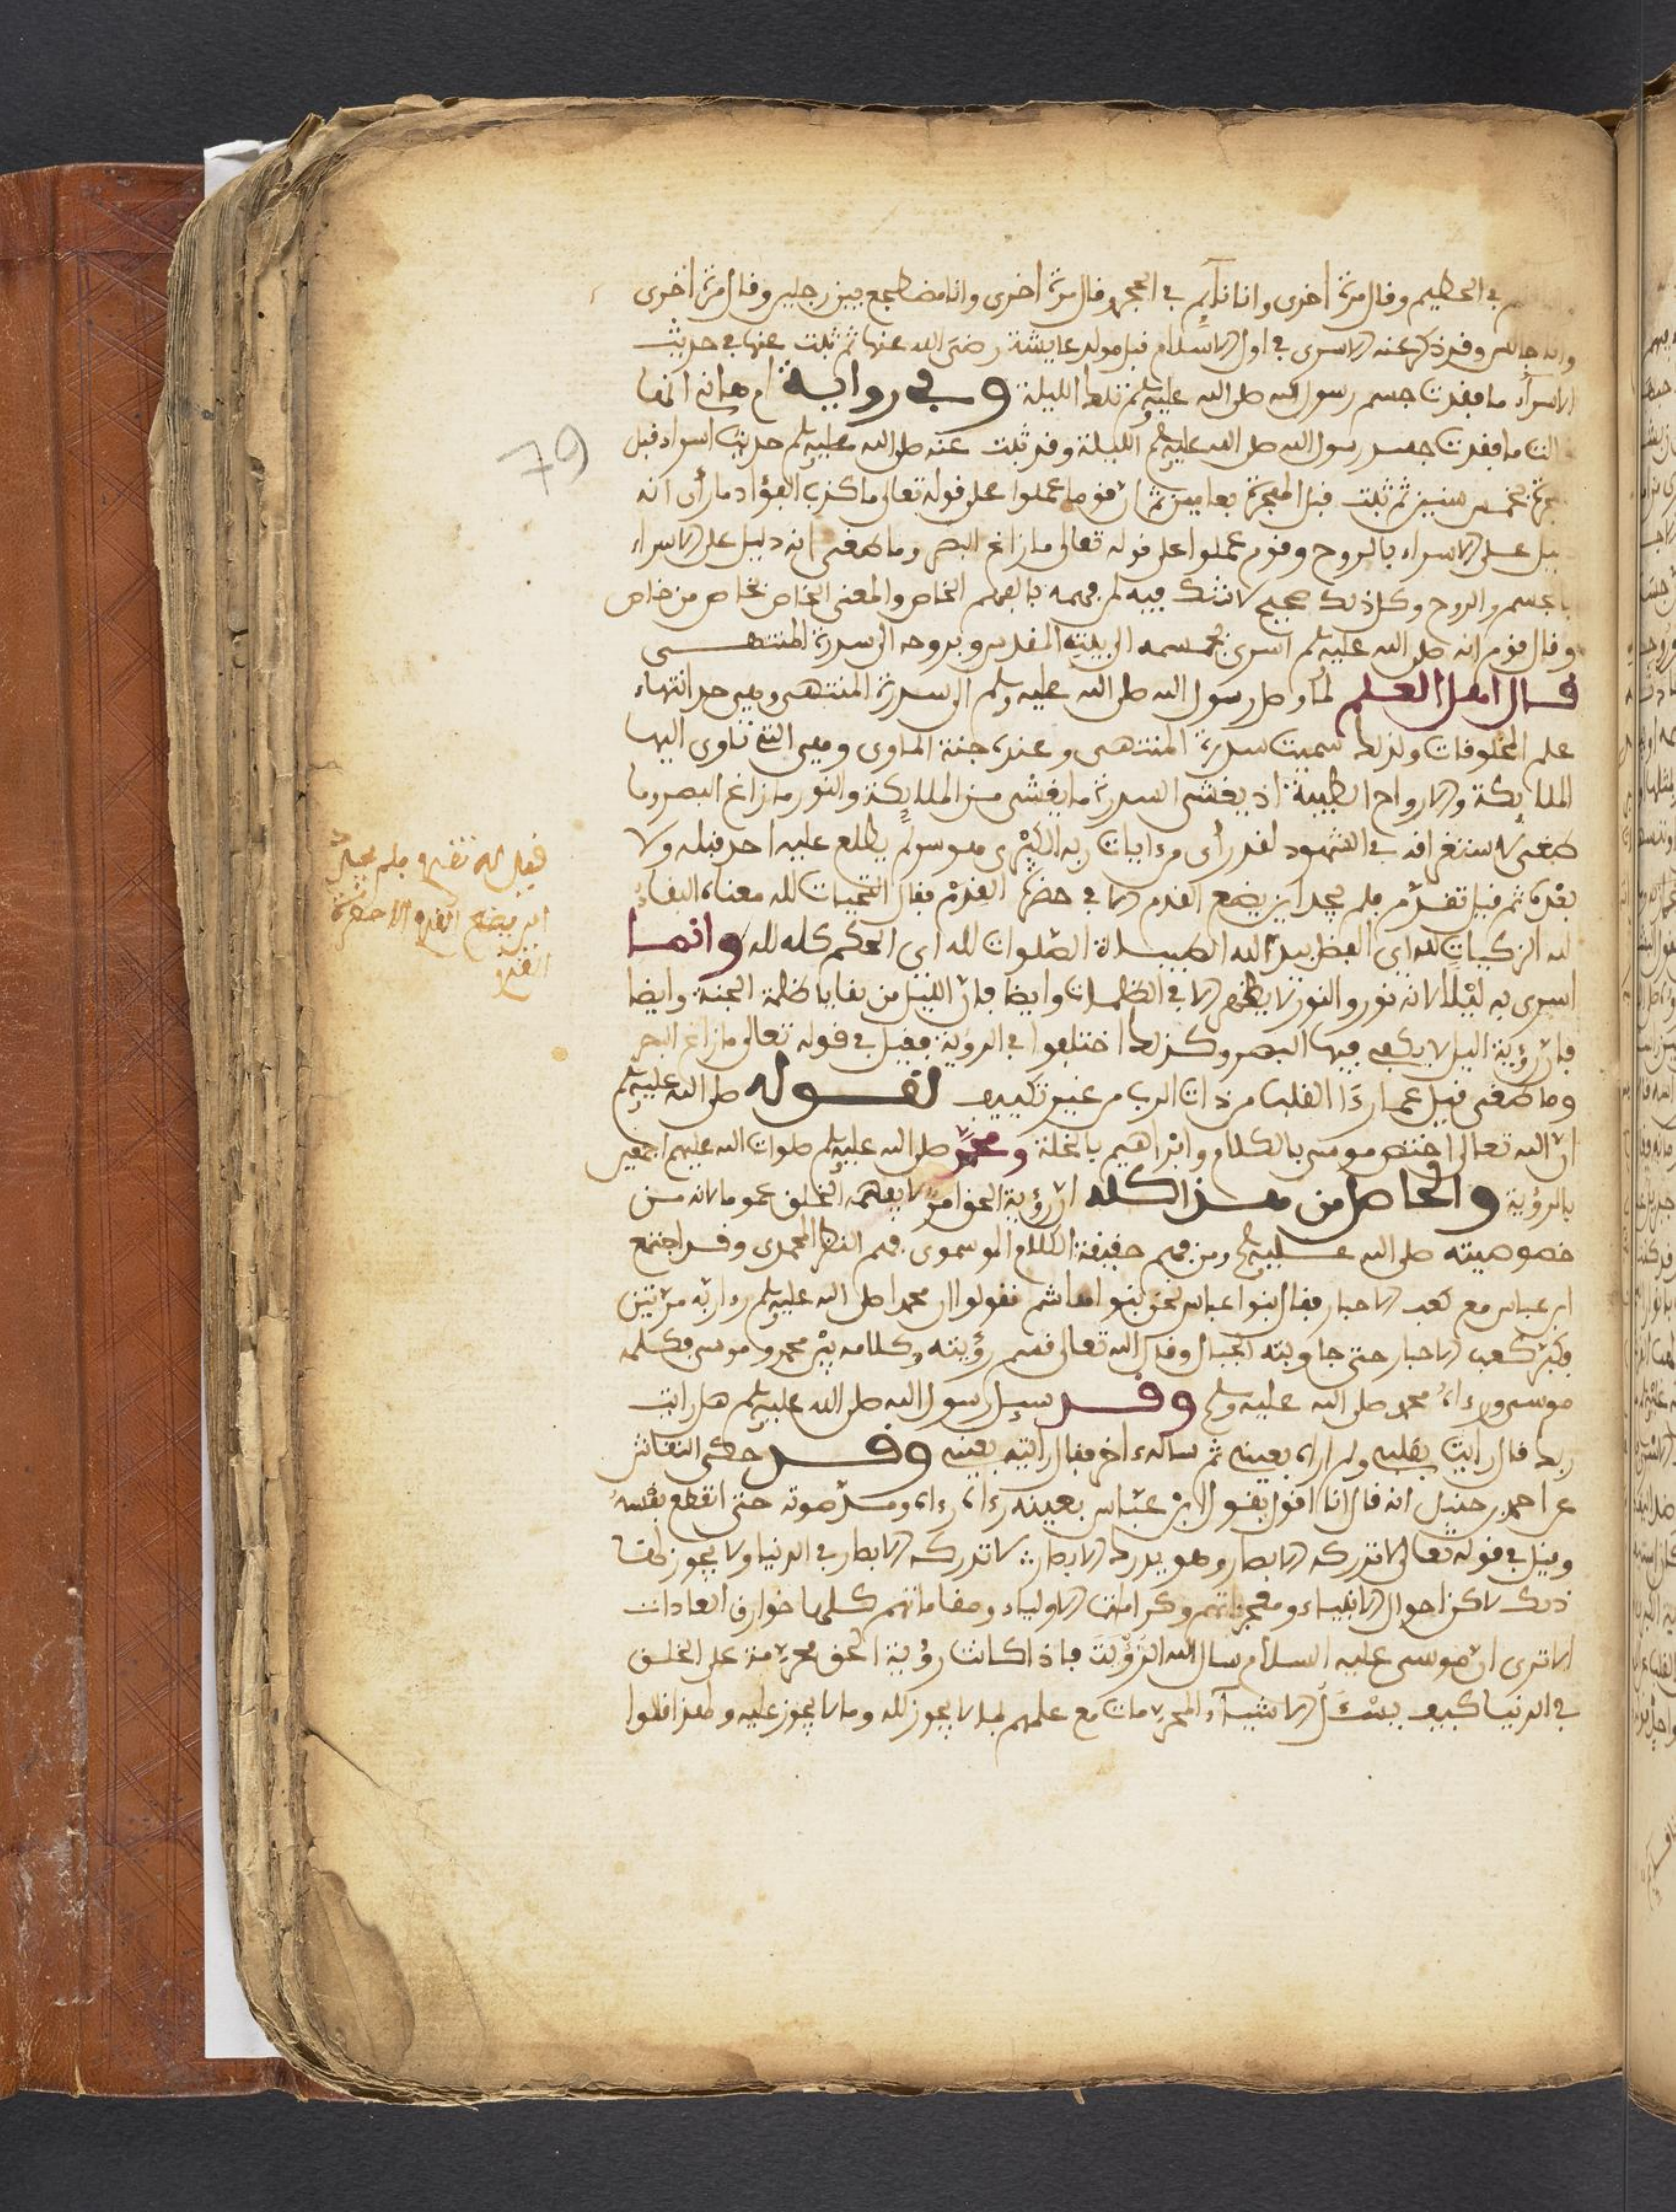 في الحطيم وقال مرة أخرى وانا نائم في الحجر وقال مرة أخرى وانا مضطجع بين رجلين وقال مرة أخرى
وانا جالس وقد ذكر عنه الاسرى في اول الاسلام قبل مولد عايشة رضي الله عنها ثم ثبت عنها في حديث
الاسراء ما فقدت جسم رسول الله صلى الله عليه وسلم تلك الليلة وفي رواية ام هانئ انها
قالت ما فقدت جسد رسول الله صلى الله عليه وسلم الليلة وقد ثبت عنه صلى الله عليه وسلم حديث اسراء قبل
بخمس سنين ثم ثبت قبل الهجرة بعامين ثم ان قوما عملوا على قوله تعالى ما كذب الفؤاد ما رأى انه
على الاسراء بالروح وقوم عملوا على قوله تعالى ما زاغ البصر وما طغى انه دليل على الاسراء
بالجسم والروح وكل ذلك صحيح لا شك فيه لمن فهمه بالفهم الخاص والمعنى الخاص بخاص من خاص
وقال قوم انه صلى الله عليه وسلم اسرى بجسمه الى بيت المقدس وبروحه الى سدرة المنتهى
قال اهل العلم لما وصل رسول الله صلى الله عليه وسلم الى سدرة المنتهى وهي حد انتهاء
علم المخلوقات ولذلك سميت سدرة المنتهى وعنده جنة الماوى وهي التي تاوى اليها
الملائكة والارواح الطيبة اذ يغشى السدرة ما يغشى من الملائكة والنور ما زاغ البصر وما
طغى لاستغراقه في الشهود لقد رأى من ايات ربه الكبرى هو سر لم يطلع عليه احد قبله ولا
بعده ثم قيل تقدم فلم يجد اين يضع القدم الا في حضرة القدم فقال التحيات لله معناه البقاء
لله الزكيات لله اي الفضل بيد الله الطيبات الصلوات لله اي الحكم كله لله وانما
اسرى به ليلا لانه نور والنور لا يظهر الا في الظلمات وايضا فان الليل من بقايا ظلمة الجنة وايضا
فان رؤية اليل لا يكفي فيها البصر وكذلك اختلفوا في الرؤية فقيل في قوله تعالى ما زاغ البصر
وما طغى قيل عما رءا القلب من ذات الرب من غير تكييف لقوله صلى الله عليه وسلم
ان الله تعالى اختص موسى بالكلام وابراهيم بالخلة ومحمد صلى الله عليه وسلم صلوات الله عليهم اجمعين
بالرؤية والحاصل من هذا كله ان رؤية الحق امر لا يفهمه الخلق عموما لانه من
خصوصيته صلى الله عليه وسلم ومن فهم حقيقة الكلام الموسوى فهم النظر المحمدى وقد اجتمع
ابن عباس مع كعب الاحبار فقال ابن عباس نحن بنو هاشم نقول ان محمدا صلى الله عليه وسلم راى ربه مرتين
فكبر كعب الاحبار حتى جاوبته الجبال وقال ان الله تعالى قسم رؤيته وكلامه بين محمد وموسى فكلمه
موسى ورءاه محمد صلى الله عليه وسلم وقد سيل رسول الله صلى الله عليه وسلم هل رايت
ربك قال رايت بقلبي ولم اراه بعيني ثم ساله ءاخر فقال رايته بعيني وقد حكى النقاش
عن احمد بن حنبل انه قال انا اقول بقول ابن عباس بعينه رءاه رءاه ومد صوته حتى انقطع نفسه
وقيل في قوله تعالى لا تدركه الابصار وهو يدرك الابصار لا تدركه الابصار في الدنيا ولا يجوز
ذلك لاكن احوال الانبياء ومعجزاتهم وكرامات الاولياء ومقاماتهم كلها خوارق العادات
الا ترى ان موسى عليه السلام سال الله الرؤية فاذا كانت رؤية الحق محرمة على الخلق
في الدنيا كيف يسئل الاشياء المحرمات مع علمهم لما لا يجوز لله وما لا يجوز عليه
79
فقيل له تقدم فلم يجد
اين يضع القدم الا حضرة
القدم